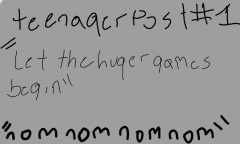 teenagerpost#1
"Let the huger games
begin"
"nom nom nom nom"